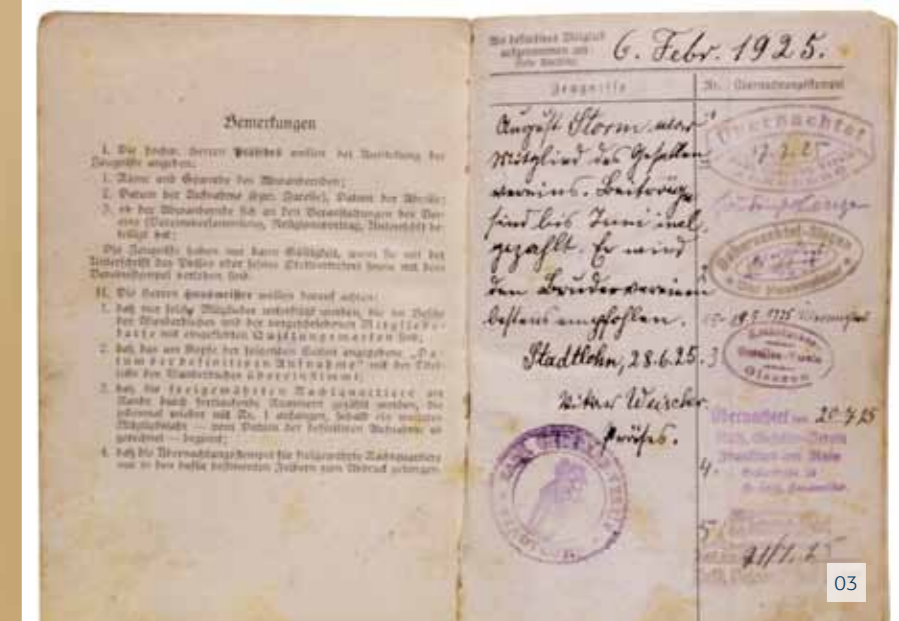 Bemerkungen
I. Die hochw. Herren Präsides wollen bei Ausstellung der
Zeugnisse angeben:
1. Name und Gewerbe des Abwandernden;
2. Datum der Aufnahme Datum der Abreise;
3. ob der Abwandernde sich an den Veranstaltungen des Ver-
eins (Vereinsversammlung, Religionsvortrag, Unterricht) be-
teiligt hat;
Die Zeugnisse haben nur dann Gültigkeit, wenn sie mit der
Unterschrift des Präses oder seines Stellvertreters sowie mit dem
Vereinsstempel versehen sind.
II. Die Herren Hausmeister wollen darauf achten:
1. daß nur solche Mitglieder unterstützt werden, die im Besitze
des Wanderbuches und der vorgeschriebenen Mitglieds-
karte mit eingeklebten Quittungsmarken sind;
2. daß das am Kopfe der folgenden Seiten angegebene „Da-
tum der definitiven Aufnahme" mit den
des Wanderbuches übereinstimmt;
3. daß die freigewährten Nachtquartiere am
Rande durch fortlaufende Nummern gezählt werden, die
jedesmal wieder mit Nr. 1 anfangen, sobald ein
Mitgliedsjahr — vom Datum der definitiven Aufnahme an
gerechnet — beginnt;
4. daß die Übernachtungsstempel für freigewährte Nachtquartiere
nur in den dafür bestimmten Feldern zum Abdruck gelangen.
Als definitives Mitglied
aufgenommen am
6. Febr. 1925.
Zeugnisse
Nr. Übernachtungsstempel
August Storm war
Mitglied des Gesellen-
vereins. Beiträge
sind bis Juni inkl.
gezahlt. Er wird
den Brudervereinen
bestens empfohlen.
Stadtlohn, 28.6.25.
Präses.
Übernachtet
17.7.25
3
Giessen
4.
Übernachtet 20.7.25
Frankfurt am Main
5
21/7. 25
03